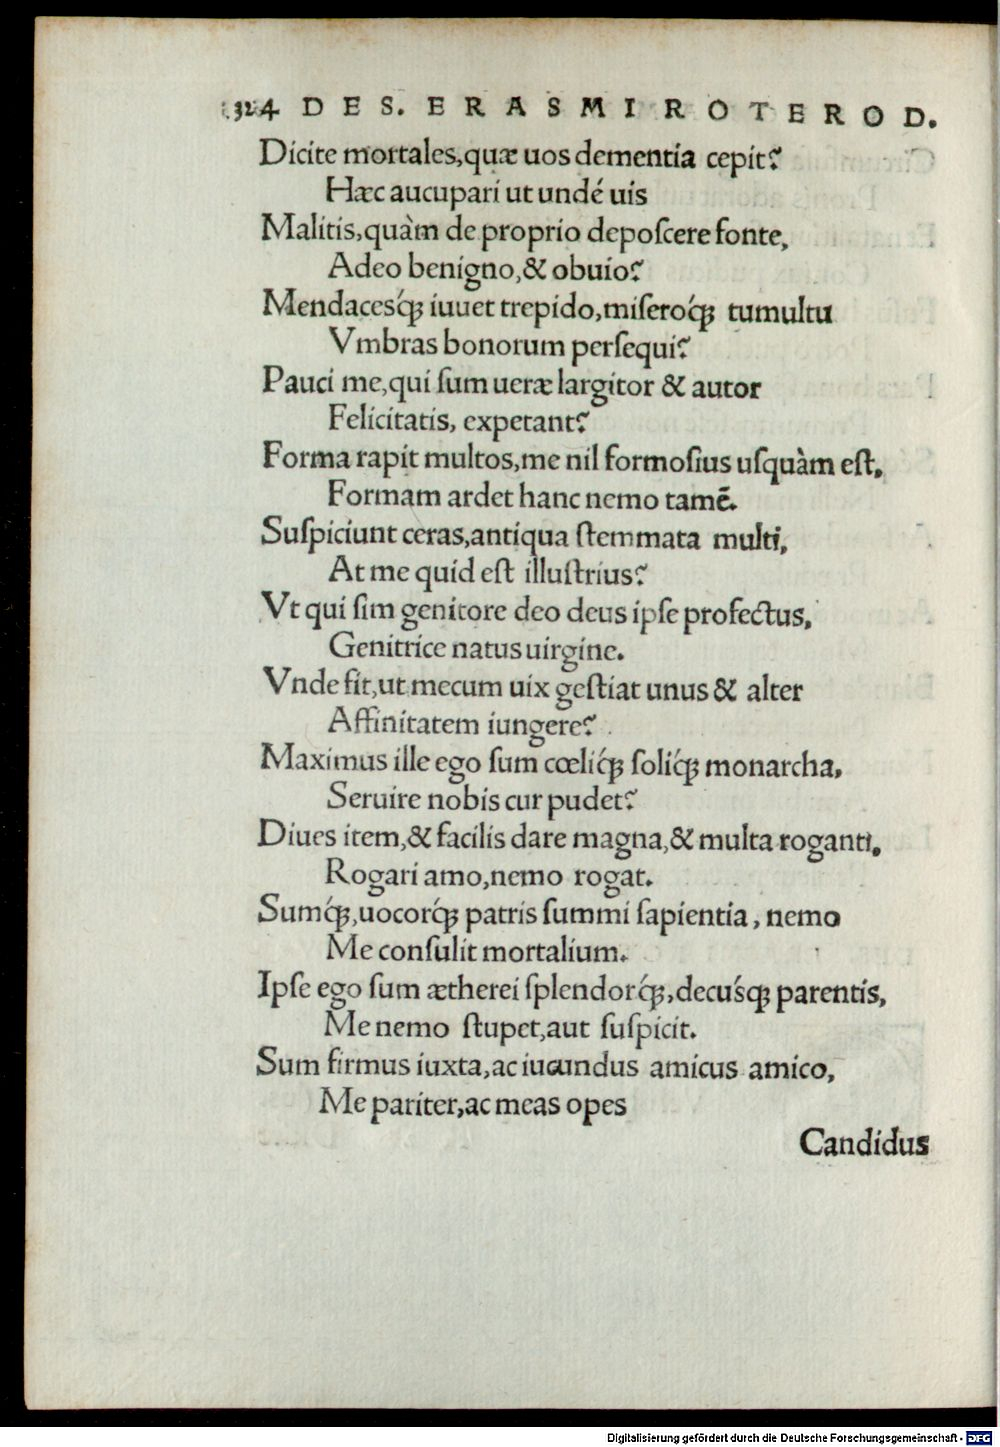 324 DES. ERASMI ROTEROD.
Dicite mortales,quæ uos dementia cepit?
Hæc aucupari ut undé uis
Malitis,quàm de proprio depoſcere fonte,
Adeo benigno,& obuio?
Mendacesq́ꝫ iuuet trepido,miſeroq́ꝫ tumultu
Vmbras bonorum perſequi?
Pauci me,qui ſum ueræ largitor & autor
Felicitatis, expetant?
Forma rapit multos,me nil formoſius uſquàm eſt,
Formam ardet hanc nemo tamē.
Suſpiciunt ceras,antiqua ſtemmata multi,
At me quid eſt illuſtrius?
Vt qui ſim genitore deo deus ipſe profectus,
Genitrice natus uirgine.
Vnde fit,ut mecum uix geſtiat unus & alter
Affinitatem iungere?
Maximus ille ego ſum cœliq́ꝫ ſoliq́ꝫ monarcha,
Seruire nobis cur pudet?
Diues item,& facilis dare magna,& multa roganti,
Rogari amo,nemo rogat.
Sumq́ꝫ,uocorq́ꝫ patris ſummi ſapientia, nemo
Me conſulit mortalium.
Ipſe ego ſum ætherei ſplendorq́ꝫ,decuśqꝫ parentis,
Me nemo ſtupet,aut ſuſpicit.
Sum firmus iuxta,ac iucundus amicus amico,
Me pariter,ac meas opes
Candidus
Digitalisierung gefördert durch die Deutsche Forschungsgemeinschaft - DFG